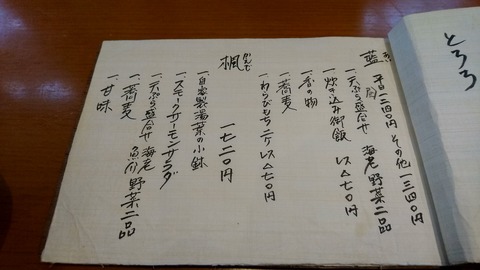 とろろ
藍 あい
平日 一二四〇円 その他 一三四〇円
一、天ぷら盛合せ 海老 野菜二品
一、炊き込み御飯 レス△七〇円
一、香の物
一、蕎麦
一、わらびもち二ケ レス△七〇円
楓 かえで 一七二〇円
一、自家製湯葉の小鉢
一、スモークサーモンサラダ
一、天ぷら盛合せ 海老 魚介 野菜二品
一、蕎麦
一、甘味